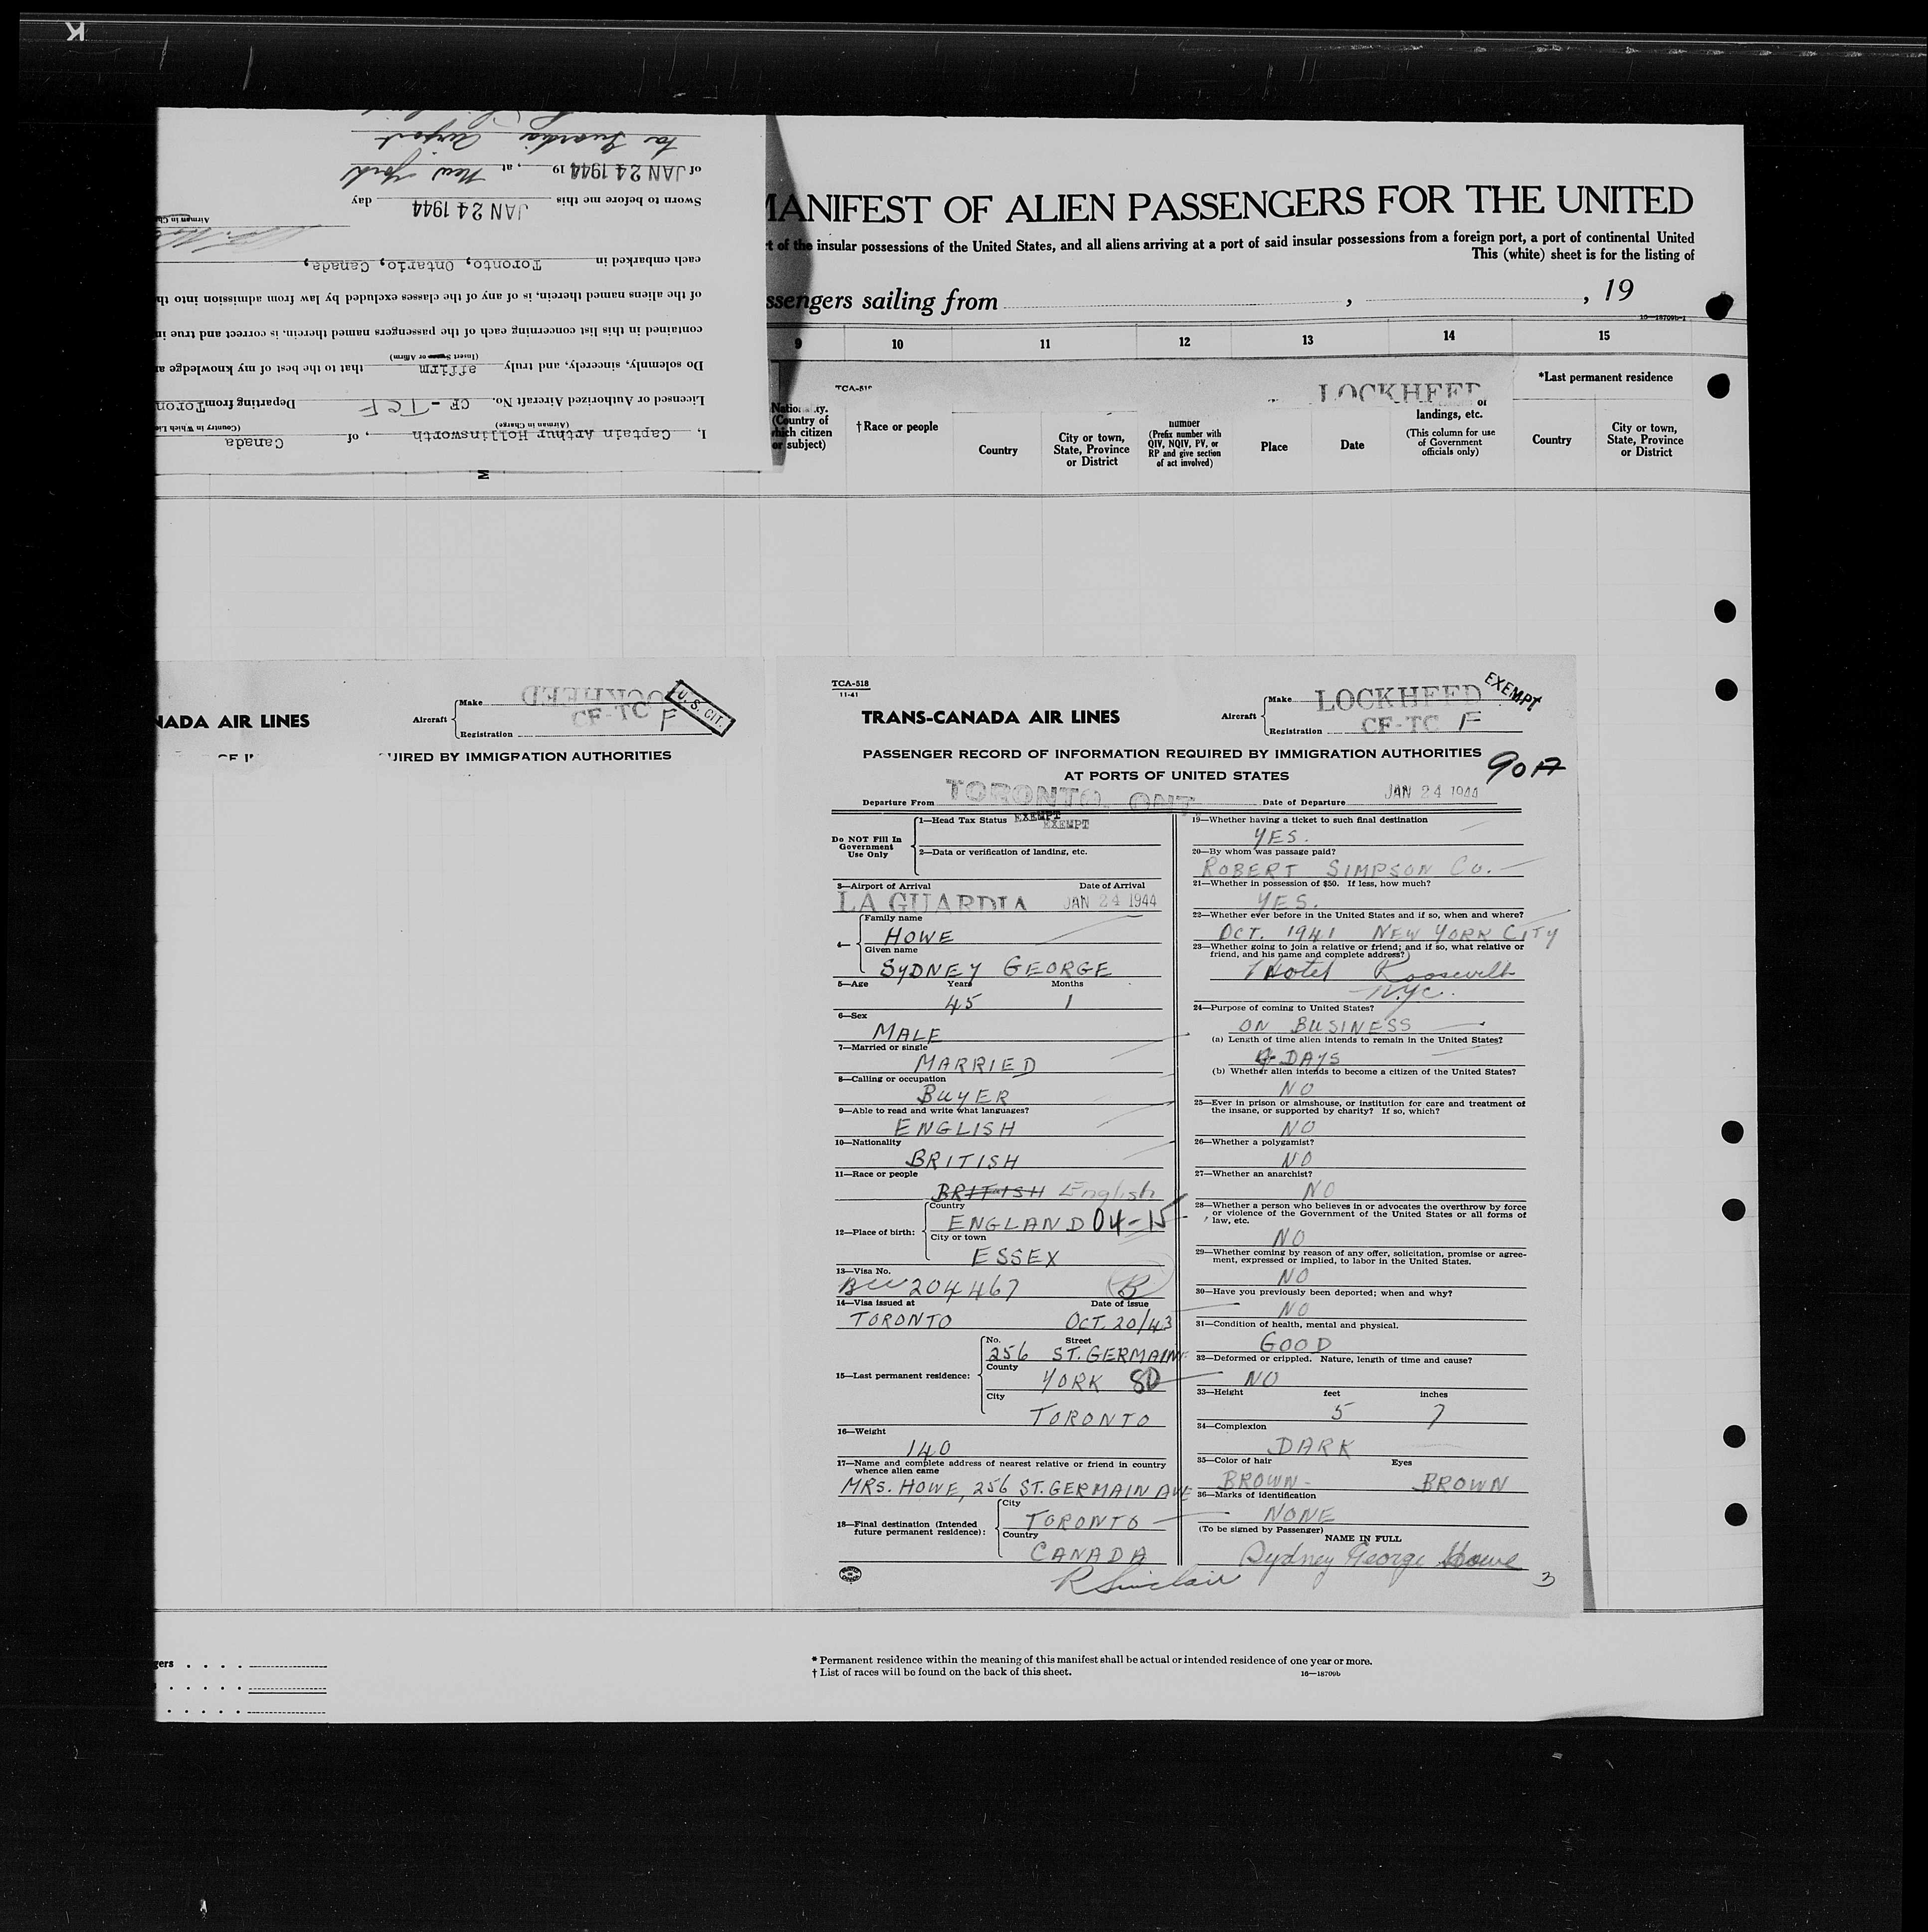 K
I, Captain Arthur Hollinsworth, of Canada
(Airman in Charge) (Country in Which Li
Licensed or Authorized Aircraft No. CF-TCF Departing from Toron
Do solemnly, sincerely, and truly affirm that to the best of my knowledge a
(Insert Swear or Affirm)
contained in this list concerning each of the passengers named therein, is correct and true in
of the aliens named therein, is of any of the classes excluded by law from admission into th
each embarked in Toronto, Ontario, Canada,
Airman in Ch
Sworn to before me this JAN 24 1944 day
of JAN 24 1944 19 , at New York
La Guardia Airport
M
MANIFEST OF ALIEN PASSENGERS FOR THE UNITED
t of the insular possessions of the United States, and all aliens arriving at a port of said insular possessions from a foreign port, a port of continental United
This (white) sheet is for the listing of
ssengers sailing from , , 19
16—18709b-1
9 10 11 12 13 14 15
TCA-518 LOCKHEED *Last permanent residence
(Country of which citizen or subject)
†Race or people
Country
City or town, State, Province or District
number (Prefix number with QIV, NQIV, PV, or RP and give section of act involved)
Place
Date
or landings, etc. (This column for use of Government officials only)
Country
City or town, State, Province or District
NADA AIR LINES
Aircraft Make LOCKHEED
Registration CF-TC F
U. S. CIT.
UIRED BY IMMIGRATION AUTHORITIES
TCA-518
11-41
TRANS-CANADA AIR LINES
Aircraft Make LOCKHEED
Registration CF-TC F
EXEMPT
PASSENGER RECORD OF INFORMATION REQUIRED BY IMMIGRATION AUTHORITIES
AT PORTS OF UNITED STATES
90A
Departure From TORONTO, ONT. Date of Departure JAN 24 1944
Do NOT Fill In
Government
Use Only
1—Head Tax Status EXEMPT
EXEMPT
2—Data or verification of landing, etc.
3—Airport of Arrival Date of Arrival
LA GUARDIA JAN 24 1944
4— Family name
HOWE
Given name
SYDNEY GEORGE
5—Age Years Months
45 1
6—Sex
MALE
7—Married or single
MARRIED
8—Calling or occupation
BUYER
9—Able to read and write what languages?
ENGLISH
10—Nationality
BRITISH
11—Race or people
BRITISH English
12—Place of birth: Country
ENGLAND 04-15
City or town
ESSEX
13—Visa No.
204467 B
14—Visa issued at Date of issue
TORONTO OCT. 20/43
15—Last permanent residence: No. Street
256 ST. GERMAIN
County
YORK 80
City
TORONTO
16—Weight
140
17—Name and complete address of nearest relative or friend in country
whence alien came
MRS. HOWE, 256 ST. GERMAIN AVE
18—Final destination (Intended
future permanent residence): City
TORONTO
Country
CANADA
R Sinclair
19—Whether having a ticket to such final destination
YES.
20—By whom was passage paid?
ROBERT SIMPSON CO.
21—Whether in possession of $50. If less, how much?
YES.
22—Whether ever before in the United States and if so, when and where?
OCT. 1941 NEW YORK CITY
23—Whether going to join a relative or friend; and if so, what relative or
friend, and his name and complete address?
Hotel Roosevelt
NYC.
24—Purpose of coming to United States?
ON BUSINESS
(a) Length of time alien intends to remain in the United States?
4 DAYS
(b) Whether alien intends to become a citizen of the United States?
NO
25—Ever in prison or almshouse, or institution for care and treatment of
the insane, or supported by charity? If so, which?
NO
26—Whether a polygamist?
NO
27—Whether an anarchist?
NO
28—Whether a person who believes in or advocates the overthrow by force
or violence of the Government of the United States or all forms of
law, etc.
NO
29—Whether coming by reason of any offer, solicitation, promise or agree-
ment, expressed or implied, to labor in the United States.
NO
30—Have you previously been deported; when and why?
NO
31—Condition of health, mental and physical.
GOOD
32—Deformed or crippled. Nature, length of time and cause?
NO
33—Height feet inches
5 7
34—Complexion
DARK
35—Color of hair Eyes
BROWN BROWN
36—Marks of identification
NONE
(To be signed by Passenger)
NAME IN FULL
Sydney George Howe
3
gers
* Permanent residence within the meaning of this manifest shall be actual or intended residence of one year or more.
† List of races will be found on the back of this sheet. 16—18709b